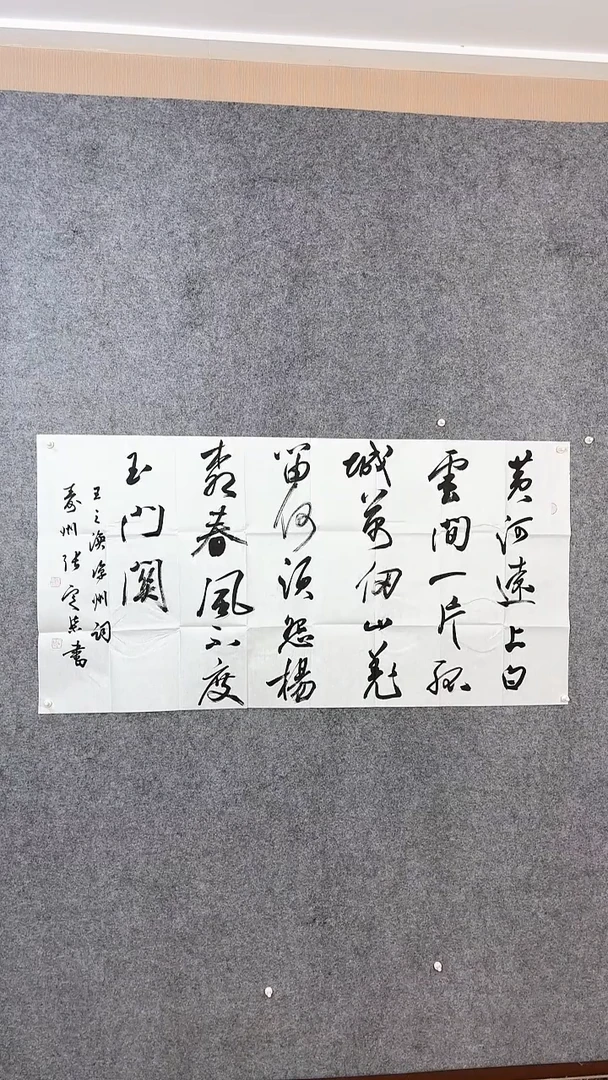 黄河遠上白
雲間一片孤
城萬仞山羌
笛何須怨楊
柳春風不度
玉門關
王之渙涼州詞
壽州张定書